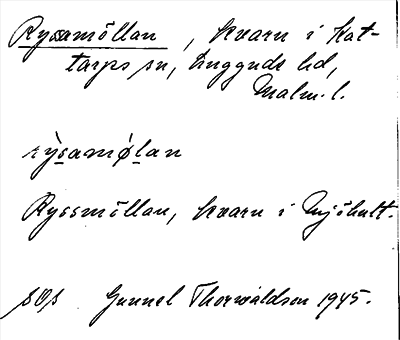 Ryssamöllan, kvarn i Kat-
tarps sn, Luggude hd,
Malm. l.
rỳsamǿlan
Ryssmöllan, kvarn i Mjöhult.
SOS Gunnel Thorwaldson 1945.